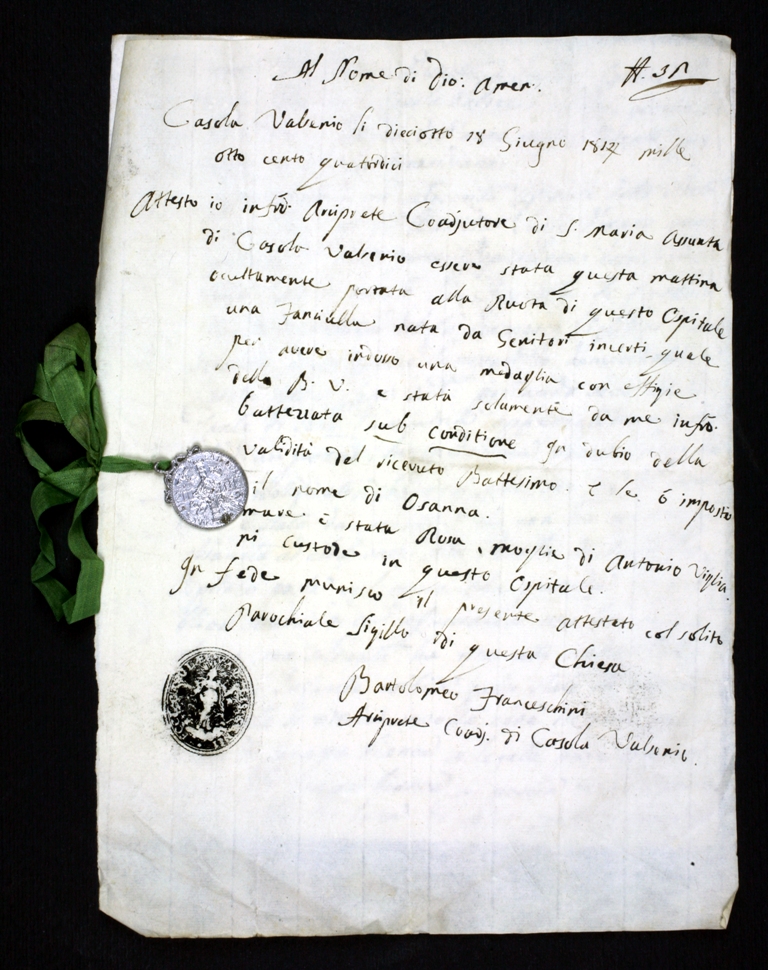 Al Nome di Dio: Amen.
Casola Valsenio li dieciotto 18 Giugno 1814 mille
otto cento quatordici
Attesto io infro. Arciprete Coadjutore di S. Maria Assunta
di Casola Valsenio essere stata questa mattina
ocultamente portata alla Ruota di questo Ospitale
una Fanciulla nata da Genitori incerti, quale
per avere indosso una medaglia con effigie
della B. V. è stata solamente da me infro.
battezzata sub conditione in dubio della
validità del ricevuto Battesimo. E le ò imposto
il nome di Osanna.
mare è stata Rosa moglie di Antonio Viglia
ni custode in questo Ospitale.
In fede munisco il presente attestato col solito
Parochiale Sigillo di questa Chiesa
Bartolomeo Franceschini
Arciprete Coadj. di Casola Valsenio.